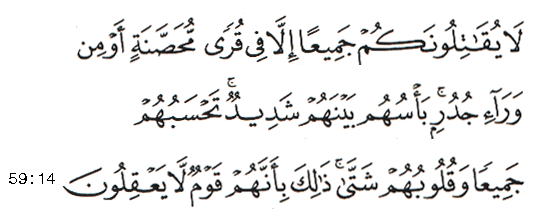 لَا يُقَـٰتِلُونَكُمْ جَمِيعًا إِلَّا فِى قُرًى مُّحَصَّنَةٍ أَوْ مِن
وَرَآءِ جُدُرٍۭ ۚ بَأْسُهُم بَيْنَهُمْ شَدِيدٌ ۚ تَحْسَبُهُمْ
جَمِيعًا وَقُلُوبُهُمْ شَتَّىٰ ۚ ذَٰلِكَ بِأَنَّهُمْ قَوْمٌ لَّا يَعْقِلُونَ 59:14